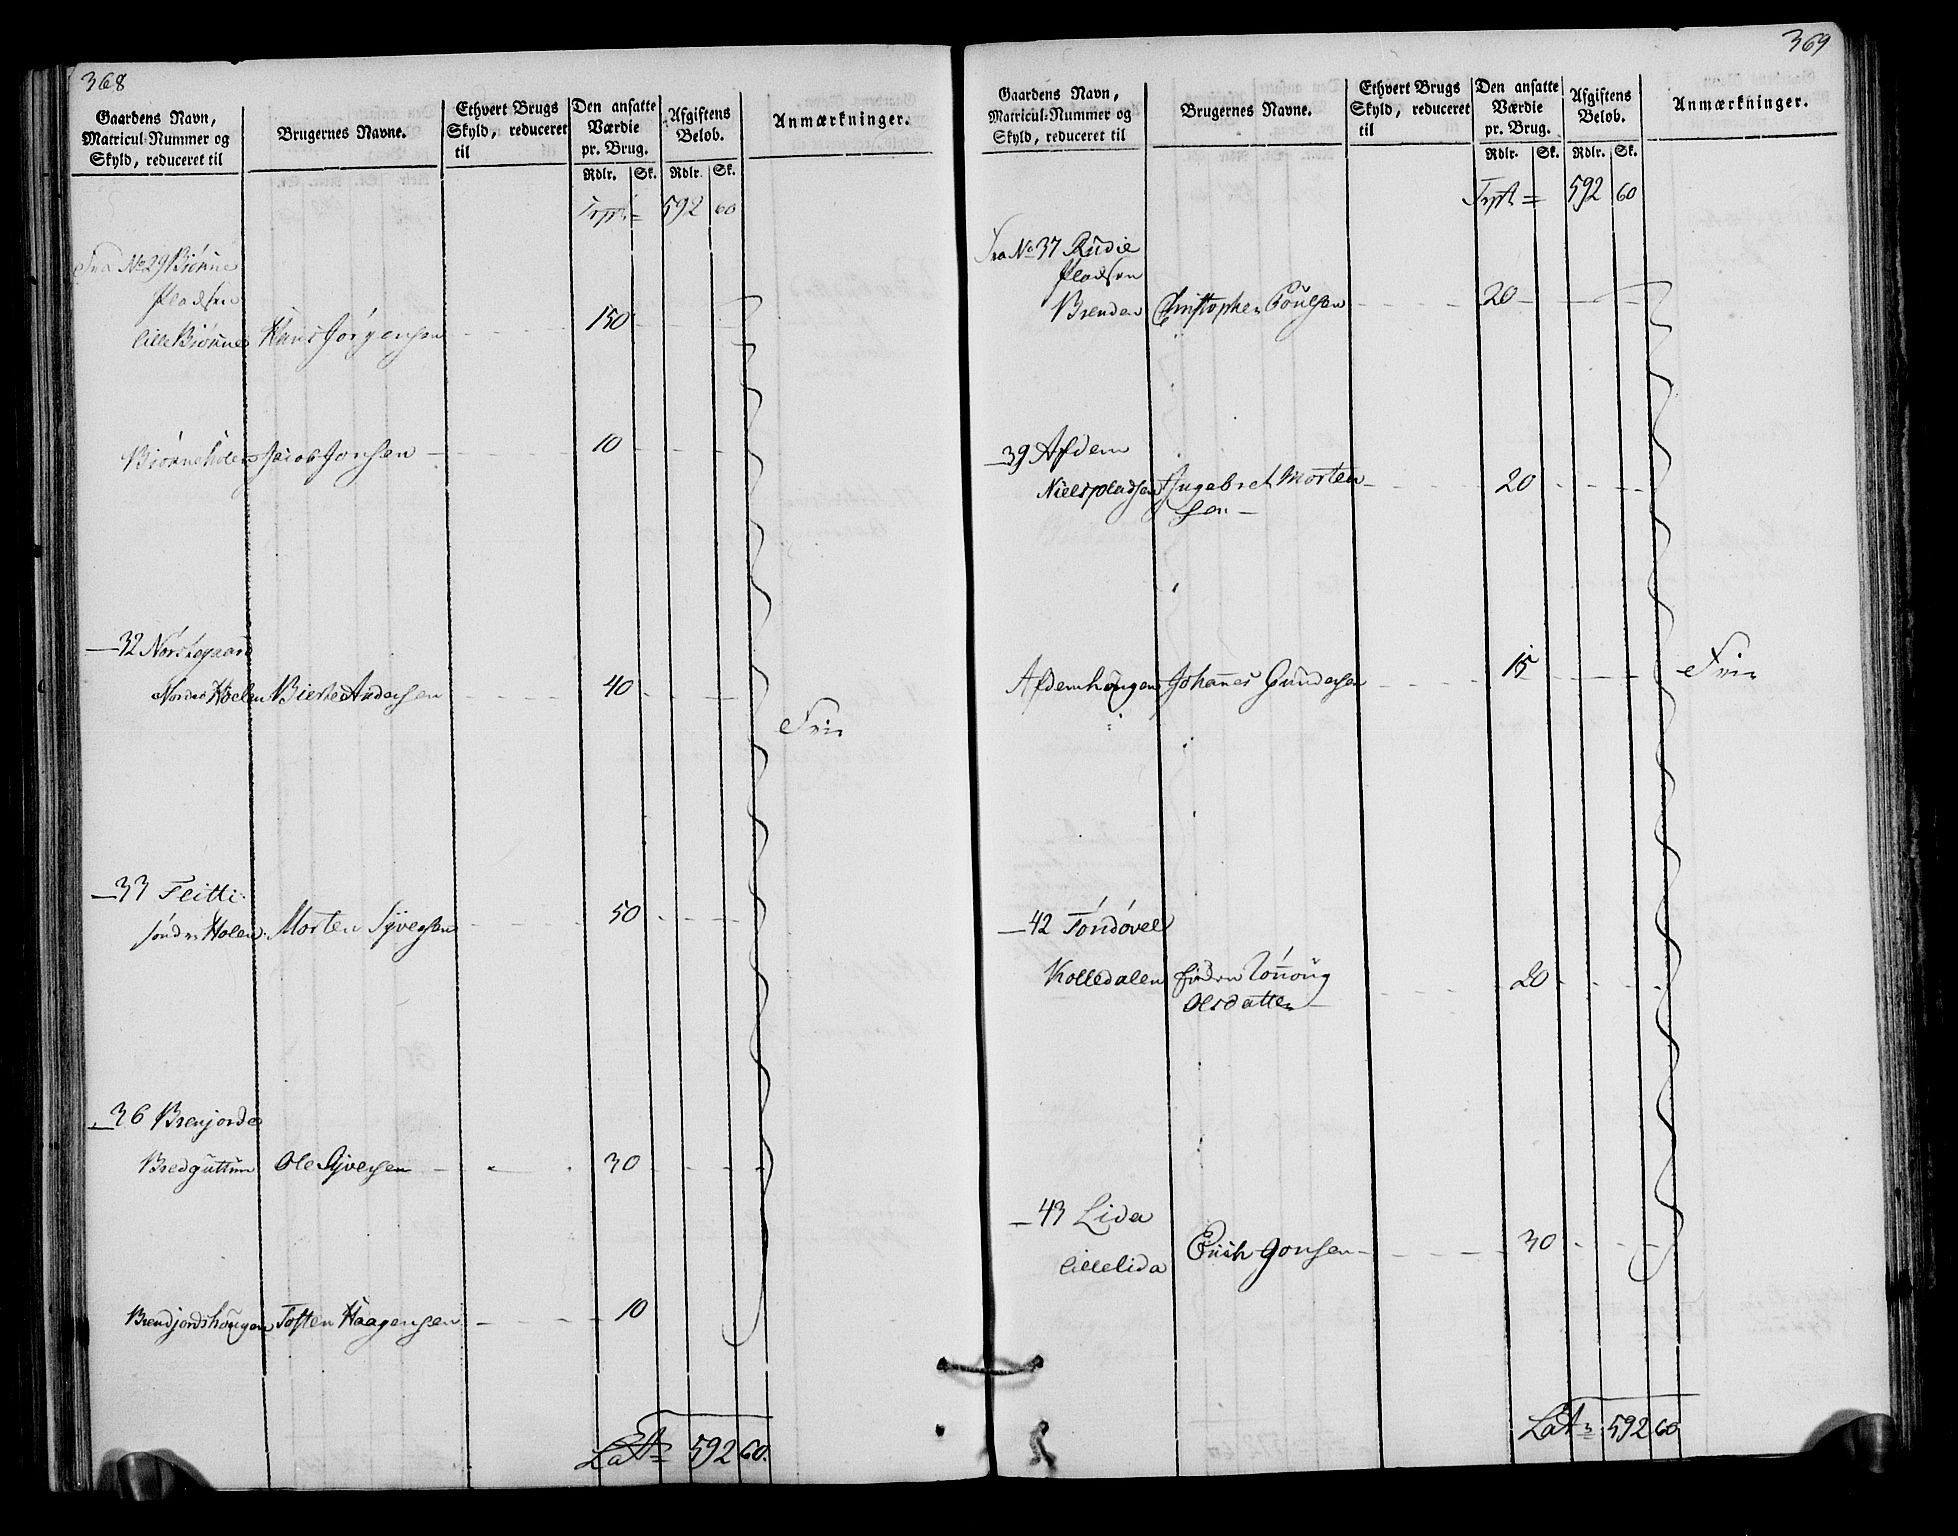 368
Gaardens Navn,
Matricul-Nummer og
Skyld, reduceret til
Brugernes Navne.
Ethvert Brugs
Skyld, reduceret
til
Den ansatte
Værdie
pr. Brug.
Afgiftens
Beløb.
Anmærkninger.
Rdlr. Sk. Rdlr. Sk.
Trpt = 592 60
Fra No 29 Biønne
Pladsen
lille Biønne Hans Jørgensen 150
Biørneholen Jacob Jonsen 10
32 Norstegaard
Nordre Hoelen Bierte Andersen 40
Frie
33 Flitti
søndre Holen Morten Syversen 50
36 Brenjorde
Bredguttum Ole Syversen 30
Brendjordshougen Tosten Haagensen 10
Lat = 592 60.
369
Gaardens Navn,
Matricul-Nummer og
Skyld, reduceret til
Brugernes Navne.
Ethvert Brugs
Skyld, reduceret
til
Den ansatte
Værdie
pr. Brug.
Afgiftens
Beløb.
Anmærkninger.
Rdlr. Sk. Rdlr. Sk.
Trpt = 592 60
Fra No 37 Rudie
Pladsen
Brenden Christopher Poulsen 20
39 Afdem
Nielspladsen Ingebret Morten
sen 20
Afdemhougen Johannes Gundersen 15
Frie
42 Tøndøvel
Kolledalen
Olsdatter 20
43 Lida
lille lida Erich Jonsen 30
Lat = 592 60